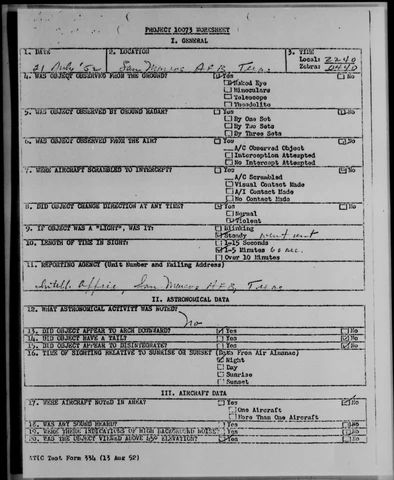 PROJECT 10073 WORKSHEET
I. GENERAL
1. DATE 2. LOCATION 3. TIME
21 July '52 San Marcos AFB, Texas Local: 2240
Zebra: 0440
4. WAS OBJECT OBSERVED FROM THE GROUND? Yes No
Naked Eye
Binoculars
Telescope
Theodolite
5. WAS OBJECT OBSERVED BY GROUND RADAR? Yes No
By One Set
By Two Sets
By Three Sets
6. WAS OBJECT OBSERVED FROM THE AIR? Yes No
A/C Observed Object
Interception Attempted
No Intercept Attempted
7. WERE AIRCRAFT SCRAMBLED TO INTERCEPT? Yes No
A/C Scrambled
Visual Contact Made
A/I Contact Made
No Contact Made
8. DID OBJECT CHANGE DIRECTION AT ANY TIME? Yes No
Normal
Violent
9. IF OBJECT WAS A "LIGHT", WAS IT: Blinking
Steady
10. LENGTH OF TIME IN SIGHT: 1-15 Seconds
1-5 Minutes 60 sec.
Over 10 Minutes
11. REPORTING AGENCY (Unit Number and Mailing Address)
Office, San Marcos AFB, Texas
II. ASTRONOMICAL DATA
12. WHAT ASTRONOMICAL ACTIVITY WAS NOTED?
No
13. DID OBJECT APPEAR TO ARCH DOWNWARD? Yes No
14. DID OBJECT HAVE A TAIL? Yes No
15. DID OBJECT APPEAR TO DISINTEGRATE? Yes No
16. TIME OF SIGHTING RELATIVE TO SUNRISE OR SUNSET (Data From Air Almanac)
Night
Day
Sunrise
Sunset
III. AIRCRAFT DATA
17. WERE AIRCRAFT NOTED IN AREA? Yes No
One Aircraft
More Than One Aircraft
18. WAS ANY SOUND HEARD? Yes No
19. WERE THERE INDICATIONS OF HIGH BACKGROUND NOISE? Yes No
20. WAS THE OBJECT VIEWED ABOVE 45° ELEVATION? Yes No
ATIC Test Form 334 (13 Aug 52)